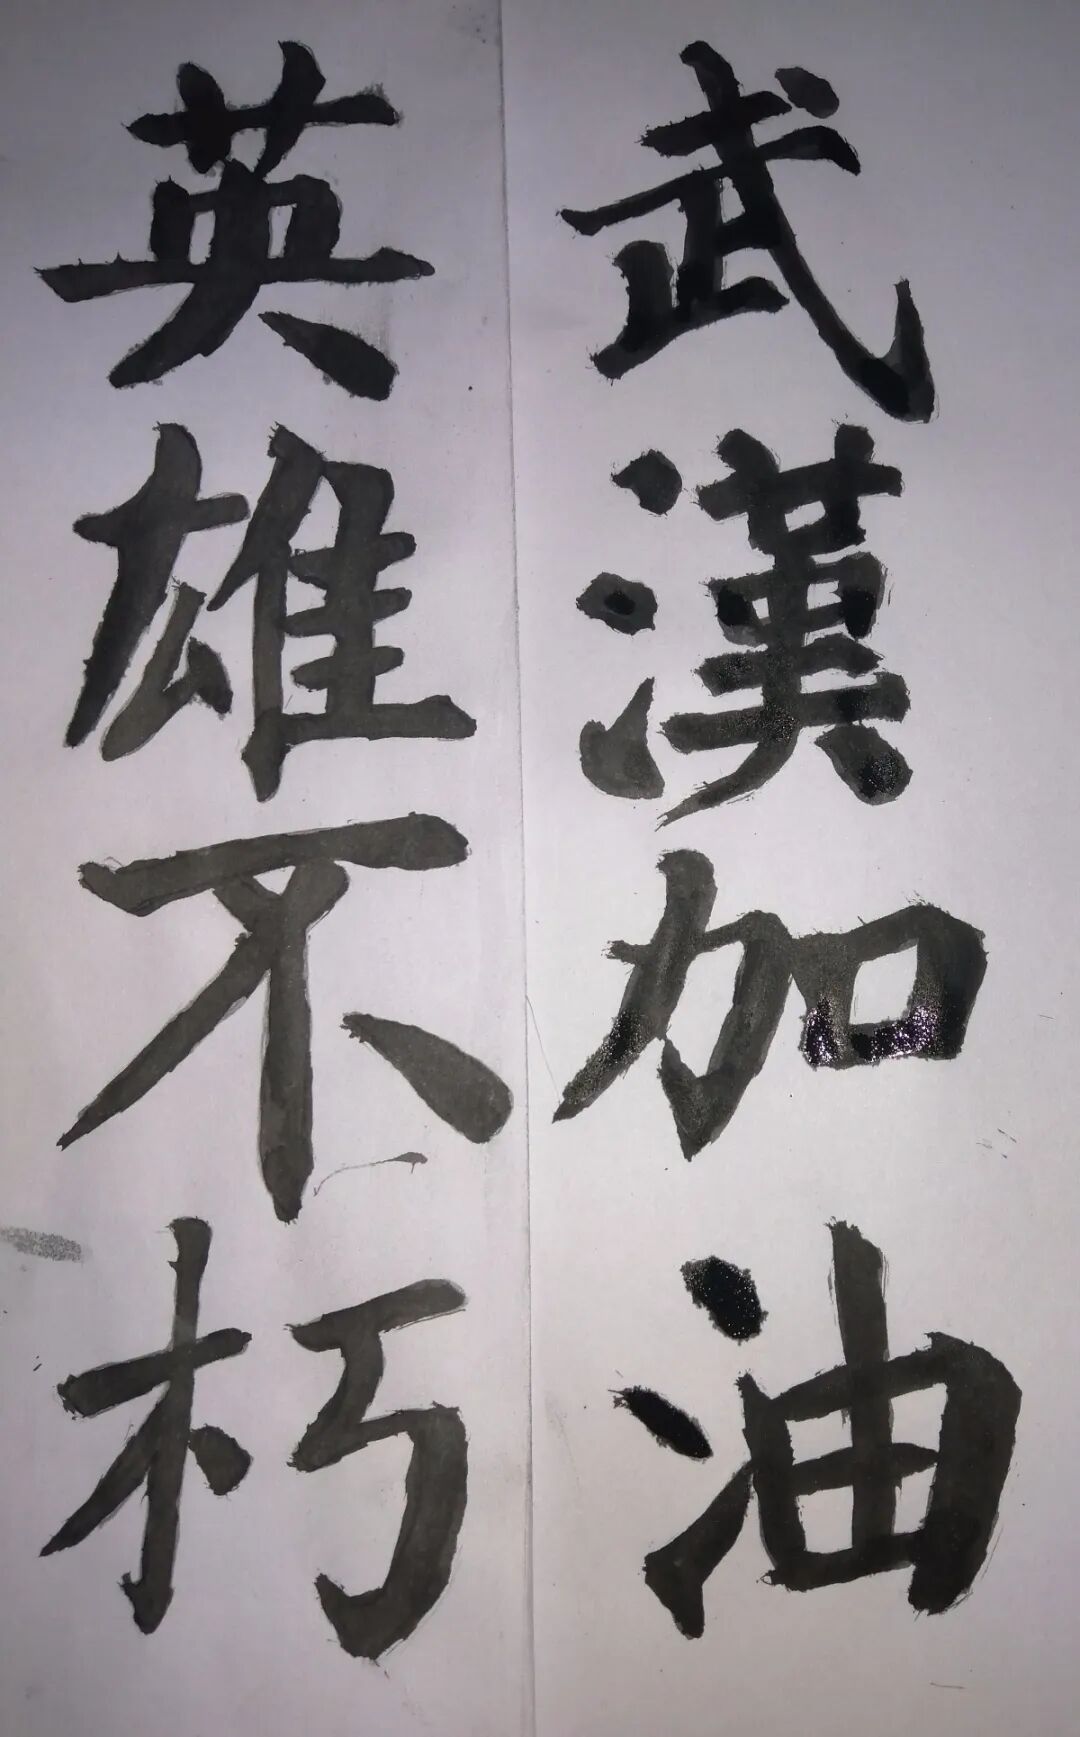 武漢加油
英雄不朽